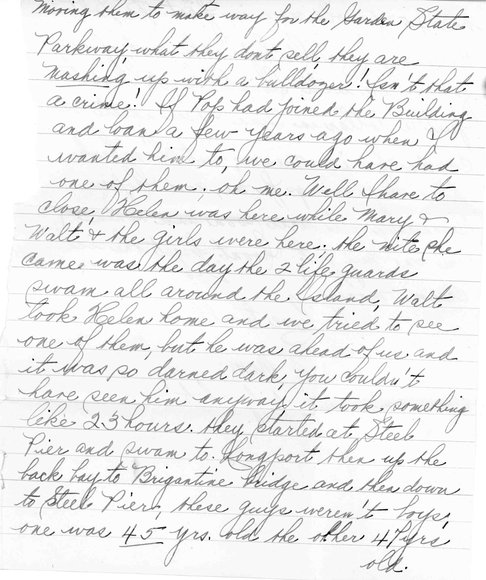 moving them to make way for the Garden State
Parkway, what they dont sell, they are
mashing up with a bulldozer! Isn't that
a crime! If Pop had joined the Building
and loan a few years ago when I
wanted him to, we could have had
one of them, oh me. Well I have to
close, Helen was here while Mary &
Walt & the girls were here. the nite she
came was the day the 2 life guards
swam all around the Island, Walt
took Helen home and we tried to see
one of them, but he was ahead of us and
it was so darned dark, you couldn't
have seen him anyway, it took something
like 23 hours. they started at Steel
Pier and swam to Longport then up the
back bay to Brigantine bridge and then down
to Steel Pier, these guys weren't boys,
one was 45 yrs. old the other 47 yrs
old.